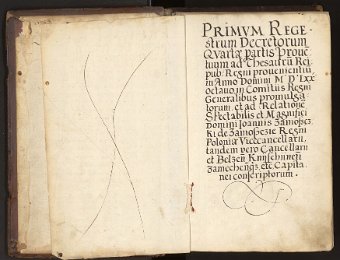 PRIMVM REGE-
strum Decretorum
Quartæ partis Proue-
tuum ad Thesaurū Rei
pub: Regni prouenientiū
in Anno Domini M D LXX
octauo in Comitiis Regni
Generalibus promulga-
torum, et ad Relatione
Spectabilis et Magnifici
Domini Ioannis Zamoÿscz
ki de Zamoÿscie Regni
Poloniæ Vicecancellarii,
tandem vero Cancellarii
et Belzen̄ Knischinen̄
Zamechen̄ etc Capita-
nei conscriptorum.